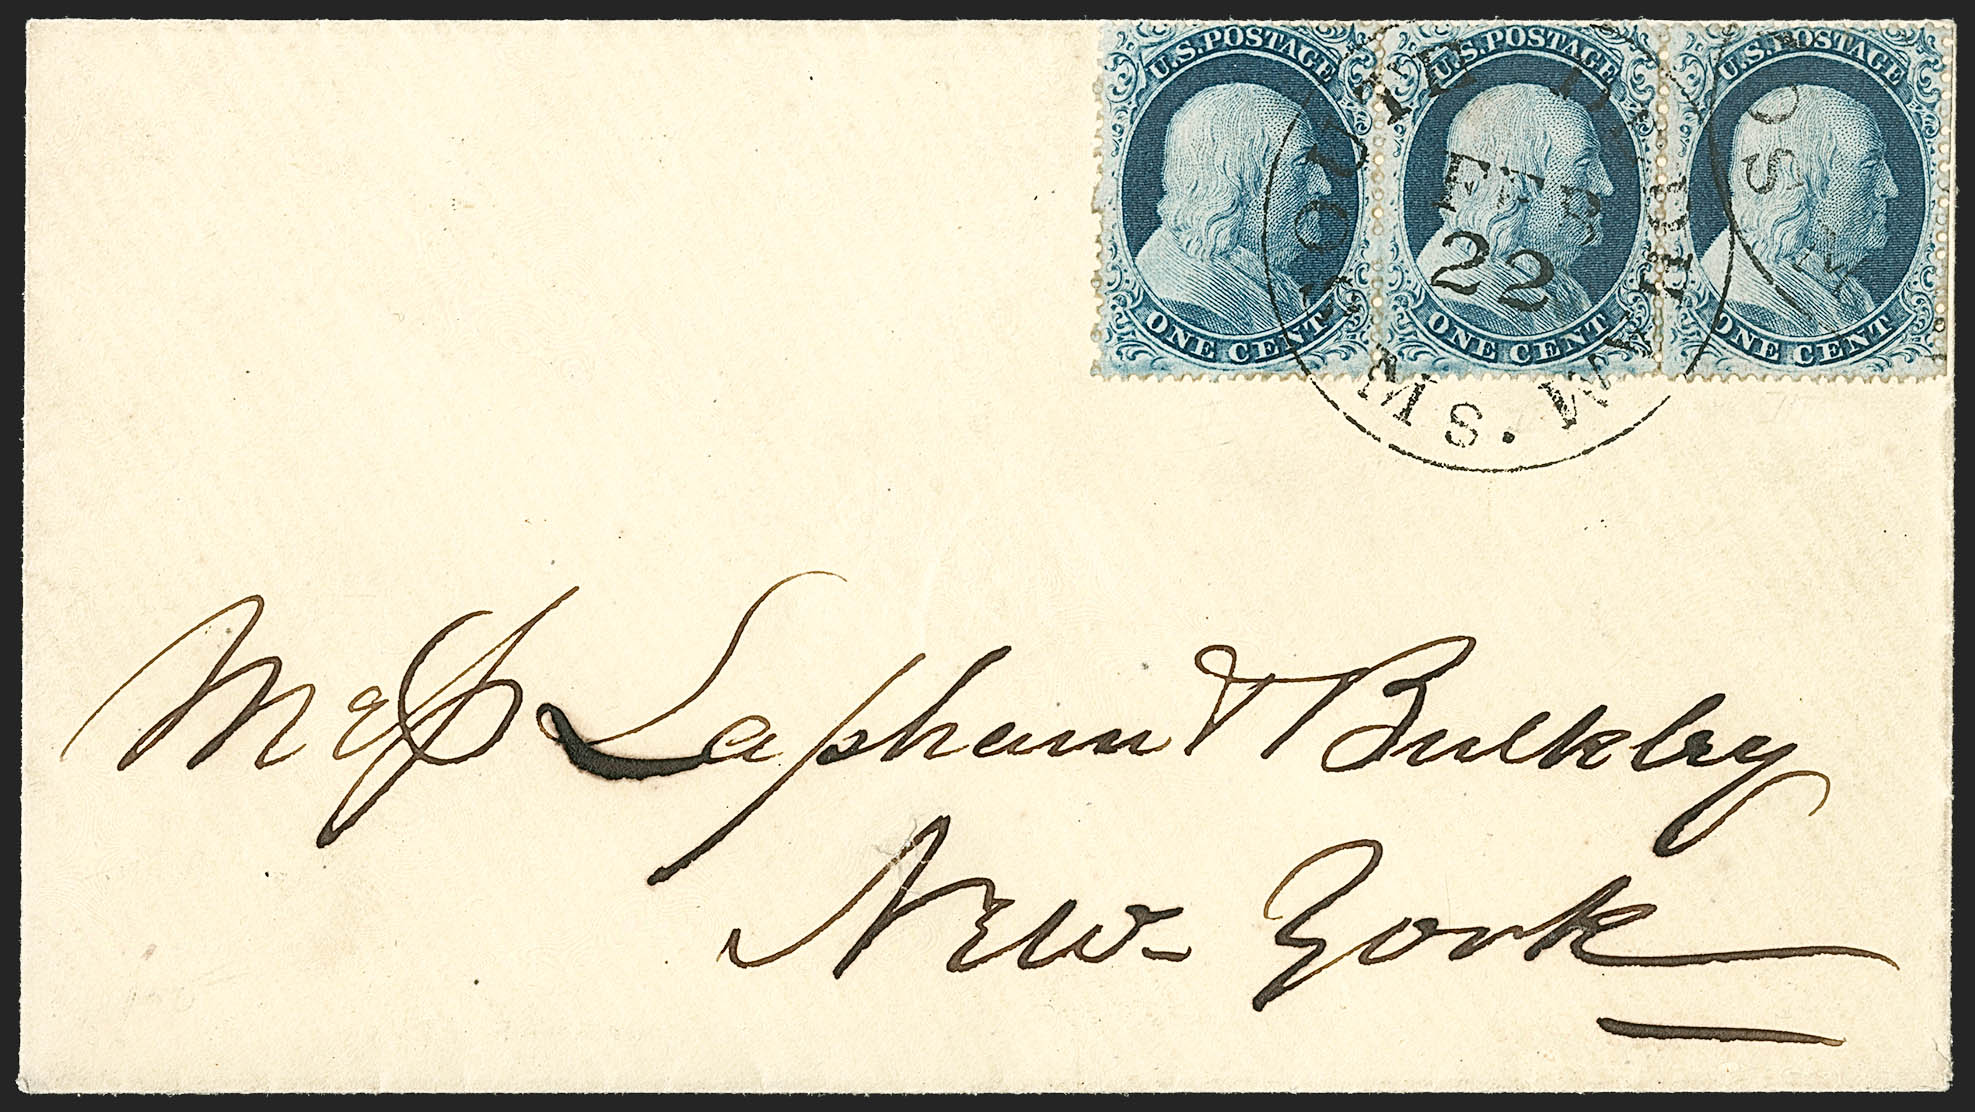 U.S. POSTAGE U.S. POSTAGE U.S. POSTAGE
ONE CENT ONE CENT ONE CENT
SOUTH
FEB
22
MS.
Mess Lapham & Bulkley
New-York